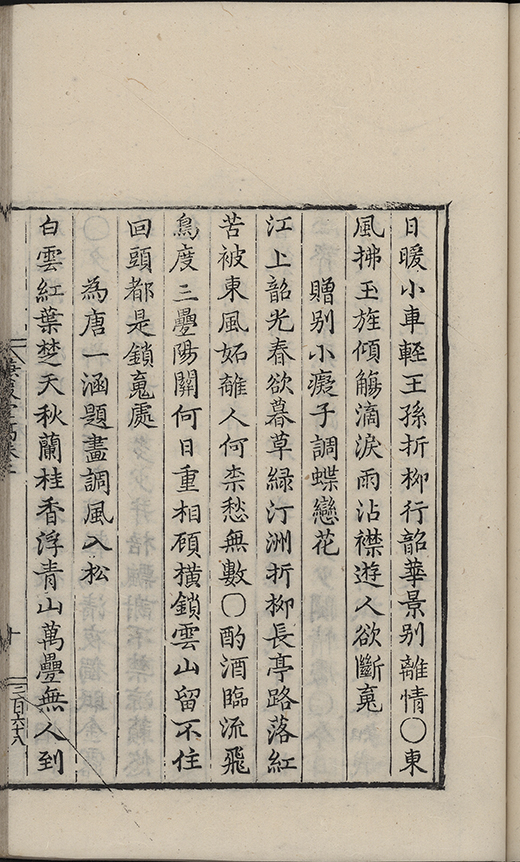 日暖小車輕王孫折柳行韶華景别離情〇東
風拂玉旌傾觴滴淚雨沾襟遊人欲斷䰟
贈别小癡子調蝶戀花
江上韶光春欲暮草綠汀洲折柳長亭路落紅
苦被東風妬離人何柰愁無數〇酌酒臨流飛
鳥度三疊陽關何日重相顧橫鎖雲山留不住
回頭都是鎖䰟處
為唐一涵題畫調風入松
白雲紅葉楚天秋蘭桂香浮青山萬疊無人到
十
三百六十八